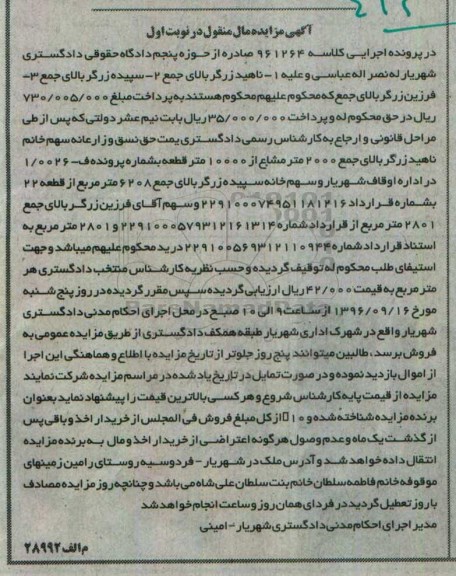 ۲۱۲
آگهی مزایده مال منقول در نوبت اول
در پرونده اجرایی کلاسه ۹۶۱۲۶۴ صادره از حوزه پنجم دادگاه حقوقی دادگستری
شهریار له نصراله عباسی و علیه ۱- ناهید زرگر بالای جمع ۲- سپیده زرگر بالای جمع ۳-
فرزین زرگر بالای جمع که محکوم علیهم محکوم هستند به پرداخت مبلغ ۷۳۰/۰۰۵/۰۰۰
ریال در حق محکوم له و پرداخت ۳۵/۰۰۰/۰۰۰ ریال بابت نیم عشر دولتی که پس از طی
مراحل قانونی و ارجاع به کارشناس رسمی دادگستری یمت حق نسق و زارعانه سهم خانم
ناهید زرگر بالای جمع ۲۰۰۰ متر مشاع از ۱۰۰۰۰ متر قطعه بشماره پرونده ف-۱/۰۰۲۶
در اداره اوقاف شهریار و سهم خانه سپیده زرگر بالای جمع ۶۲۰۸ متر مربع از قطعه ۲۲
بشماره قرارداد ۲۲۹۱۰۰۰۷۴۹۵۱۱۸۱۲۱۶ و سهم آقای فرزین زرگر بالای جمع
۲۸۰۱ متر مربع از قرارداد شماره ۲۲۹۱۰۰۰۵۷۹۳۱۲۱۶۱۳۱۴ و ۲۸۰۱ متر مربع به
استناد قرارداد شماره ۲۲۹۱۰۰۵۶۹۳۱۲۱۱۰۹۴۴ در ید محکوم علیهم میباشد و جهت
استیفای طلب محکوم له توقیف گردیده و حسب نظریه کارشناس منتخب دادگستری هر
متر مربع به قیمت ۴۲/۰۰۰ ریال ارزیابی گردیده سپس مقرر گردیده در روز پنج شنبه
مورخ ۱۳۹۶/۰۹/۱۶ از ساعت ۹ الی ۱۰ صبح در محل اجرای احکام مدنی دادگستری
شهریار واقع در شهرک اداری شهریار طبقه همکف دادگستری از طریق مزایده عمومی به
فروش برسد، طالبین میتوانند پنج روز جلوتر از تاریخ مزایده با اطلاع و هماهنگی این اجرا
از اموال بازدید نموده و در صورت تمایل در تاریخ یاد شده در مراسم مزایده شرکت نمایند
مزایده از قیمت پایه کارشناس شروع و هر کسی بالاترین قیمت را پیشنهاد نماید بعنوان
برنده مزایده شناخته شده و ۱۰ از کل مبلغ فروش فی المجلس از خریدار اخذ و باقی پس
از گذشت یک ماه و عدم وصول هرگونه اعتراضی از خریدار اخذ و مال به برنده مزایده
انتقال داده خواهد شد و آدرس ملک در شهریار - فردوسیه روستای رامین زمینهای
موقوفه خانم فاطمه سلطان خانم بنت سلطان علی شاه می باشد و چنانچه روز مزایده مصادف
با روز تعطیل گردید در فردای همان روز و ساعت انجام خواهد شد
مدیر اجرای احکام مدنی دادگستری شهریار - امینی
م الف ۲۸۹۹۲